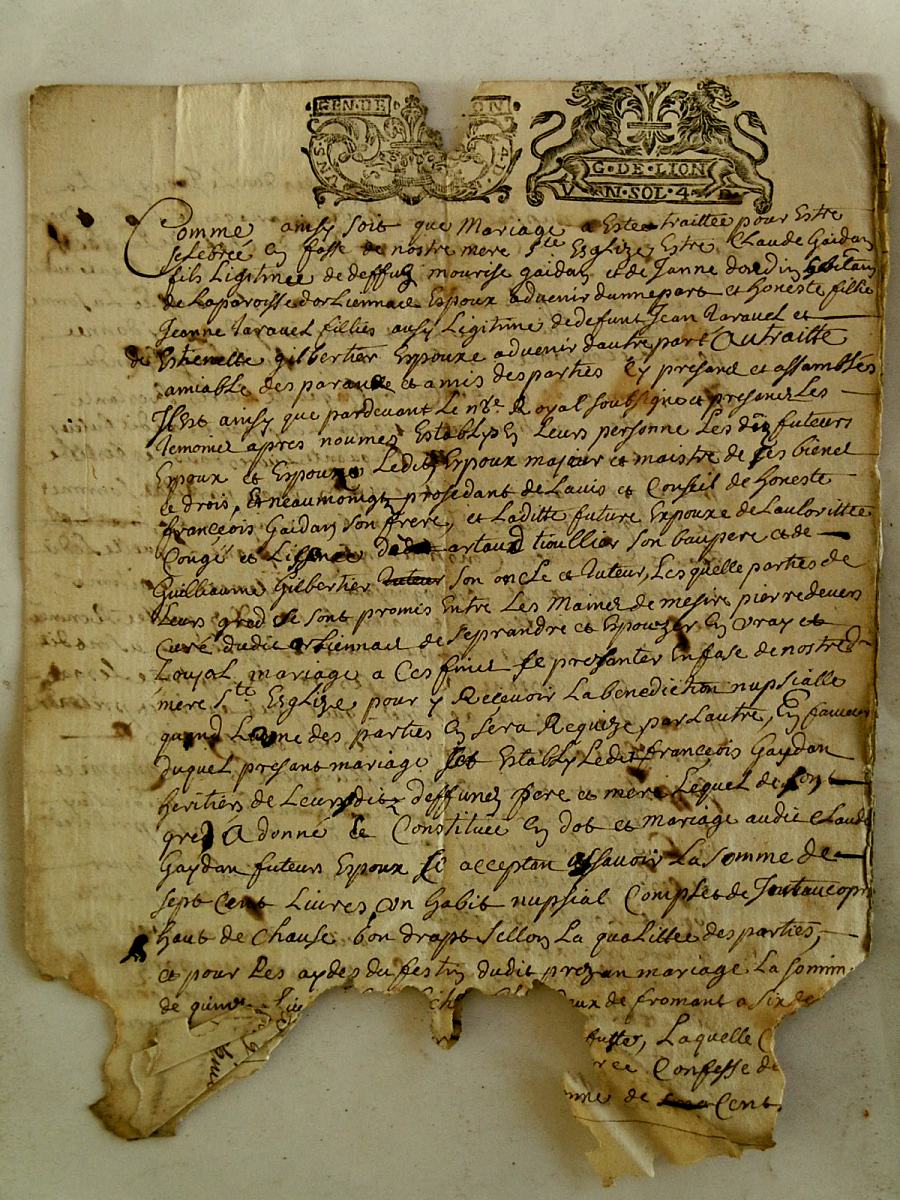 GEN·DE ON·
G·DE·LION
V N·SOL·4 D
Comme ainsy soit que Mariage a Este traittée pour Estre
selebré En fasse de nostre mere Ste Esglize, Estre Claude Gaidan
fils Ligitime de deffun mourise gaidan et de Janne dordin habitan
de Laparoisse dorLiennad Espoux advenir dunnepart et honeste fillie
Jeanne Jaravel fillies ausy Legitime dedefunt Jean Jaravel et
de Estienette gilbertier Espouze advenir dautre part Autraitte
amiable des parans et amis desparties Cy presand et assamblés
Il Est ainsy que pardevant Le nre Royal soubsigné et presand Les
Temoins apres noumés Establys En Leurs personne Les dits futeurs
Espoux et Espouze Ledit Espoux majeur et maistre de ses bienet
et drois, Et neaumoingt prosedant de Lavis et Conseil de honeste
françois Gaidan son frere, et Laditte future Expouze de Lautorittee
Congé et Lissence de artaud tioullier son baupere et de
Guilliaume Gilbertier tuteur son oncle et Tuteur, Lesquelle parties de
Leurs gred se sont promis Entre Les Mains de mesire pierre devers
Curé dudit orliennad de seprandre et Espouzer En vray et
Loyal mariage a Ces finet se presanter Enfase de nostred
mere Ste Esglize pour y Recevoir La benediction nupsialle
quand Lunne des parties En sera Requize par Lautre, En faveur
duquel presant mariage set Establyledit françois Gaydan
heritiers de Leursdits deffunes pere et mere Lequel de sont
gred A donné et Constituée En dot et mariage audit Claude
Gaydan futeurs Espoux se acceptan assavoir La somme de
sept Cent Livres, un habit nupsial Complet de Justaucopr
haut de Chause bon drapt sellon La qualittee des parties,
et pour Les aydes du festin dudit prezan mariage La somm
de quinz de fromant a six de
Laquelle
Confesse de
de Cent